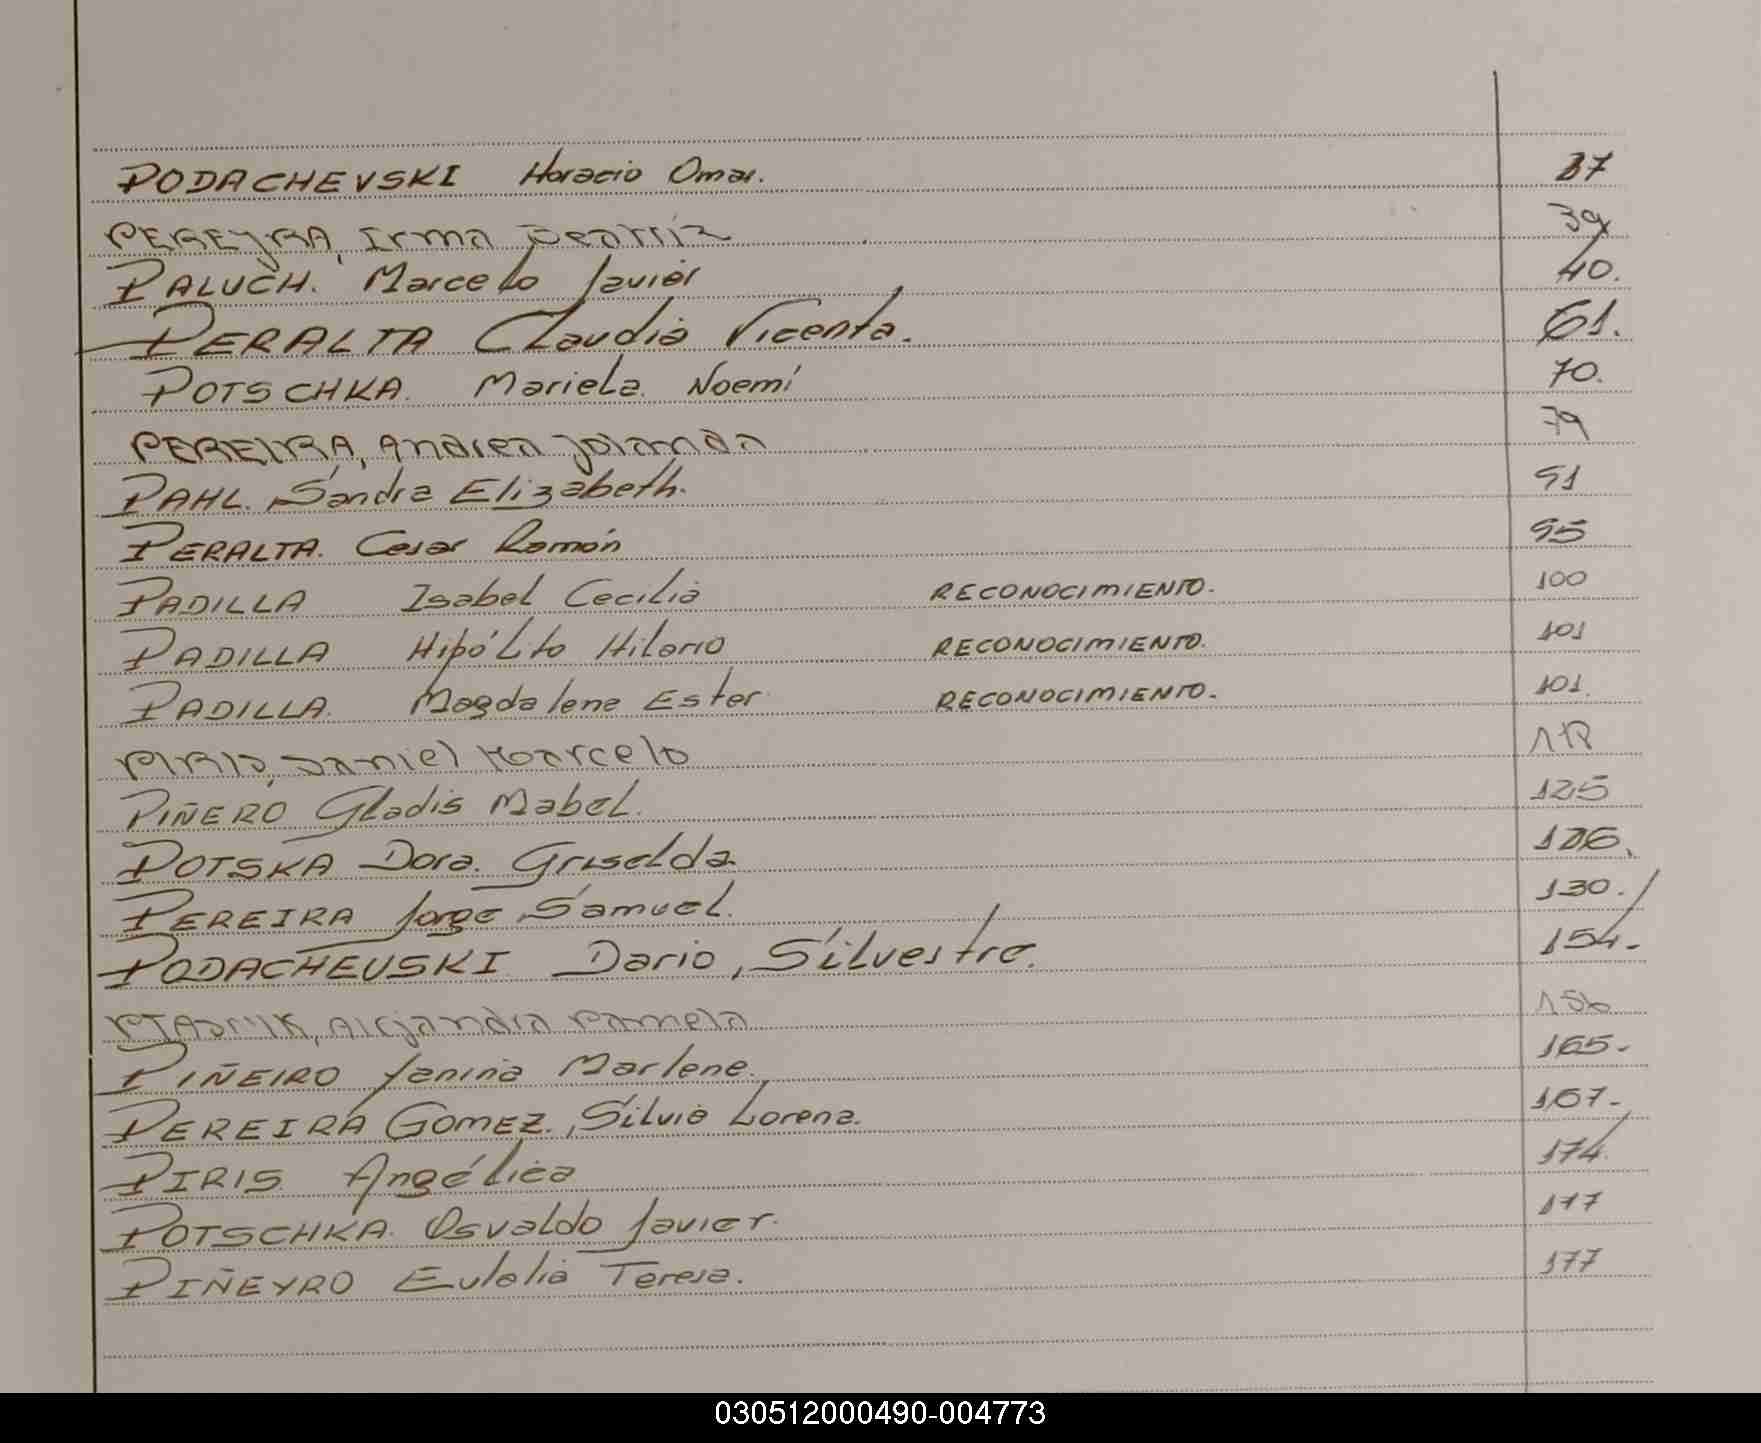 PODACHEVSKI Horacio Omar. 37
PEREYRA, Irma Beatriz 39
PALUCH. Marcelo Javier 40.
PERALTA Claudia Vicenta. 61.
POTSCHKA. Mariela Noemí 70.
PEREIRA, Andrea Jolanda 79
PAHL. Sandra Elizabeth. 91
PERALTA. Cesar Ramón 95
PADILLA Isabel Cecilia RECONOCIMIENTO. 100
PADILLA Hipólito Hilario RECONOCIMIENTO. 101
PADILLA. Magdalena Ester RECONOCIMIENTO. 101.
PIRIS, Daniel Marcelo
PIÑERO Gladis Mabel. 125
POTSKA Dora. Griselda. 126.
PEREIRA Jorge Samuel. 130.
PODACHEVSKI Dario, Silvestre. 154.
Alejandra Pamela 156
PIÑEIRO Yanina Marlene. 165.
PEREIRA GOMEZ., Silvia Lorena. 167.
PIRIS Angélica 174.
POTSCHKA. Osvaldo Javier. 177
PIÑEYRO Eulalia Teresa. 177
030512000490-004773